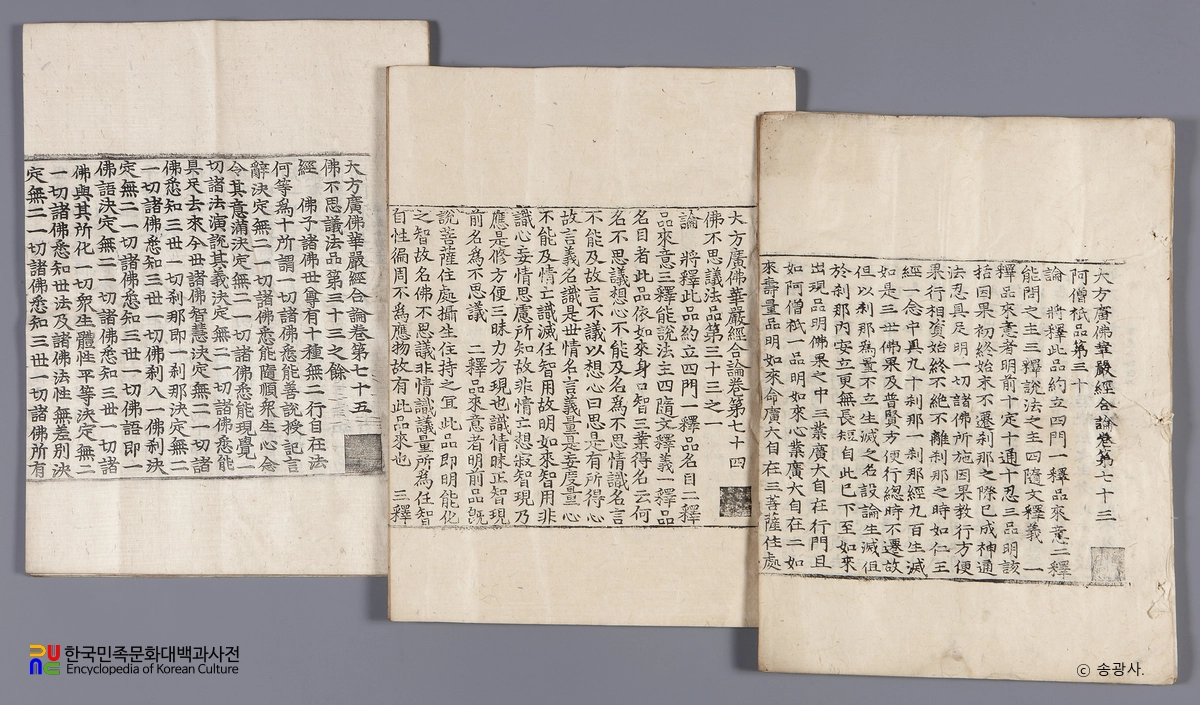 大方廣佛華嚴經合論卷第七十三
阿僧祇品第三十
論 將釋此品約立四門一釋品來意二釋
能問之主三釋說法之主四隨文釋義 一
釋品來意者明前十定十通十忍三品明該
括因果初終始末不遷刹那之際已成神通
法忍具足明一切諸佛所施因果教行方便
果行相資始終不絶不離刹那之時如仁王
經一念中具九十刹那一刹那經九百生滅
如是三世佛果及普賢方便行總時不遷故
但以刹那爲量不立生滅之名設論生滅但
於刹那內安立更無長短自此已下至如來
出現品明佛果之中三業廣大自在行門且
如阿僧祇一品明如來心業廣大自在二如
來壽量品明如來命廣大自在三菩薩住處
大方廣佛華嚴經合論卷第七十四
佛不思議法品第三十三之一
論 將釋此品約立四門一釋品名目二釋
品來意三釋能說法主四隨文釋義一釋品
名目者此品依如來身口智三業得名云何
名不思議想心不能及名爲不思情識名言
不能及故言不議以想心曰思是有所得心
故言義名識是世情名言義量是妄度量心
不能及情亡識滅任智用故明如來智用非
識心妄情思慮所知故非情亡想寂智現乃
應是修方便三昧力方現也識情昧正智現
前名爲不思議 二釋品來意者明前品旣
說菩薩住處攝生住持之宜此品即明能化
之智故名佛不思議非情識議量所爲任智
自性徧周不爲應物故有此品來也 三釋
大方廣佛華嚴經合論卷第七十五
佛不思議法品第三十三之餘
經 佛子諸佛世尊有十種無二行自在法
何等爲十所謂一切諸佛悉能善說授記言
辭決定無二一切諸佛悉能隨順衆生心念
令其意滿決定無二一切諸佛悉能現覺一
切諸法演說其義決定無二一切諸佛悉能
具足去來今世諸佛智慧決定無二一切諸
佛悉知三世一切刹那即一刹那決定無二
一切諸佛悉知三世一切佛刹入一佛刹決
定無二一切諸佛悉知三世一切佛語即一
佛語決定無二一切諸佛悉知三世一切諸
佛與其所化一切衆生體性平等決定無二
一切諸佛悉知世法及諸佛法性無差別決
定無二一切諸佛悉知三世一切諸佛所有
한국민족문화대백과사전
Encyclopedia of Korean Culture
ⓒ 송광사.